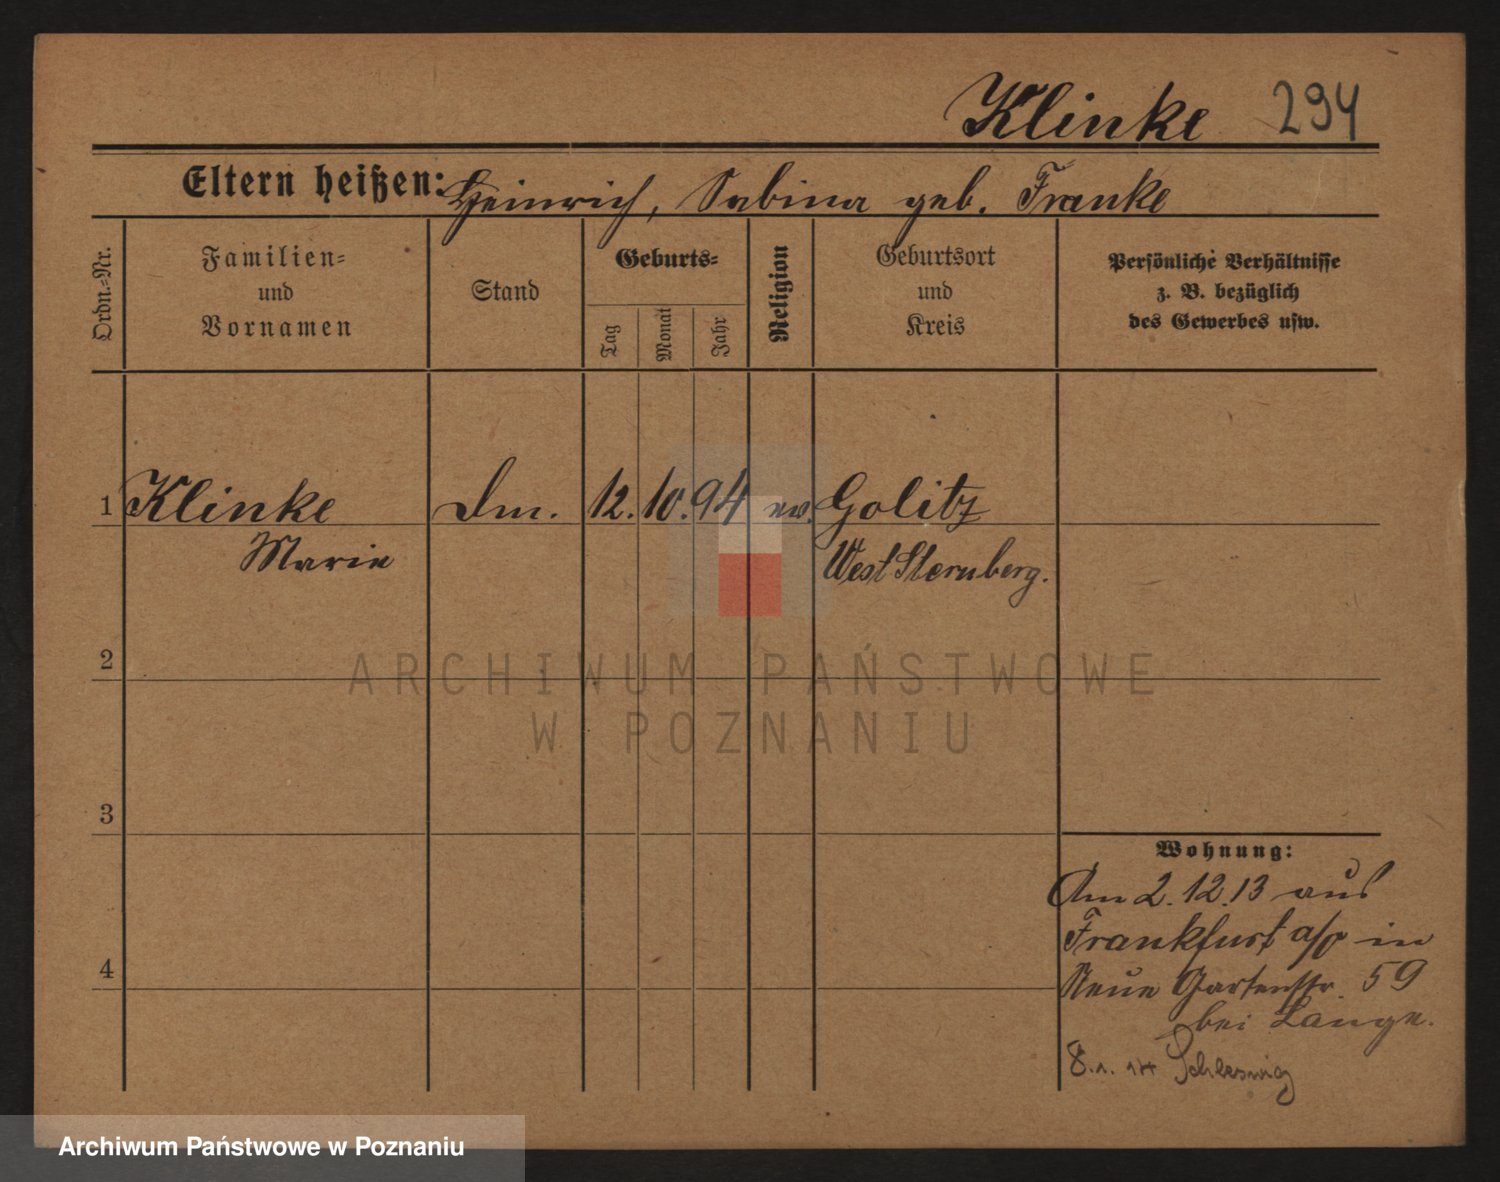 Klinke 294
Eltern heißen: Heinrich, Sabina geb. Franke
Ordn.-Nr.
Familien-
und
Vornamen
Stand
Geburts-
Tag
Monat
Jahr
Religion
Geburtsort
und
Kreis
Persönliche Verhältnisse
z. B. bezüglich
des Gewerbes usw.
1 Klinke Dm. 12. 10. 94 ev. Golitz
Marie West Sternberg.
2
ARCHIWUM PAŃSTWOWE
W POZNANIU
3
Wohnung:
Am 2. 12. 13 aus
Frankfurt a/o in
4
Neue Gartenstr. 59
bei Lange.
8. 1. 14 Schleswig
Archiwum Państwowe w Poznaniu